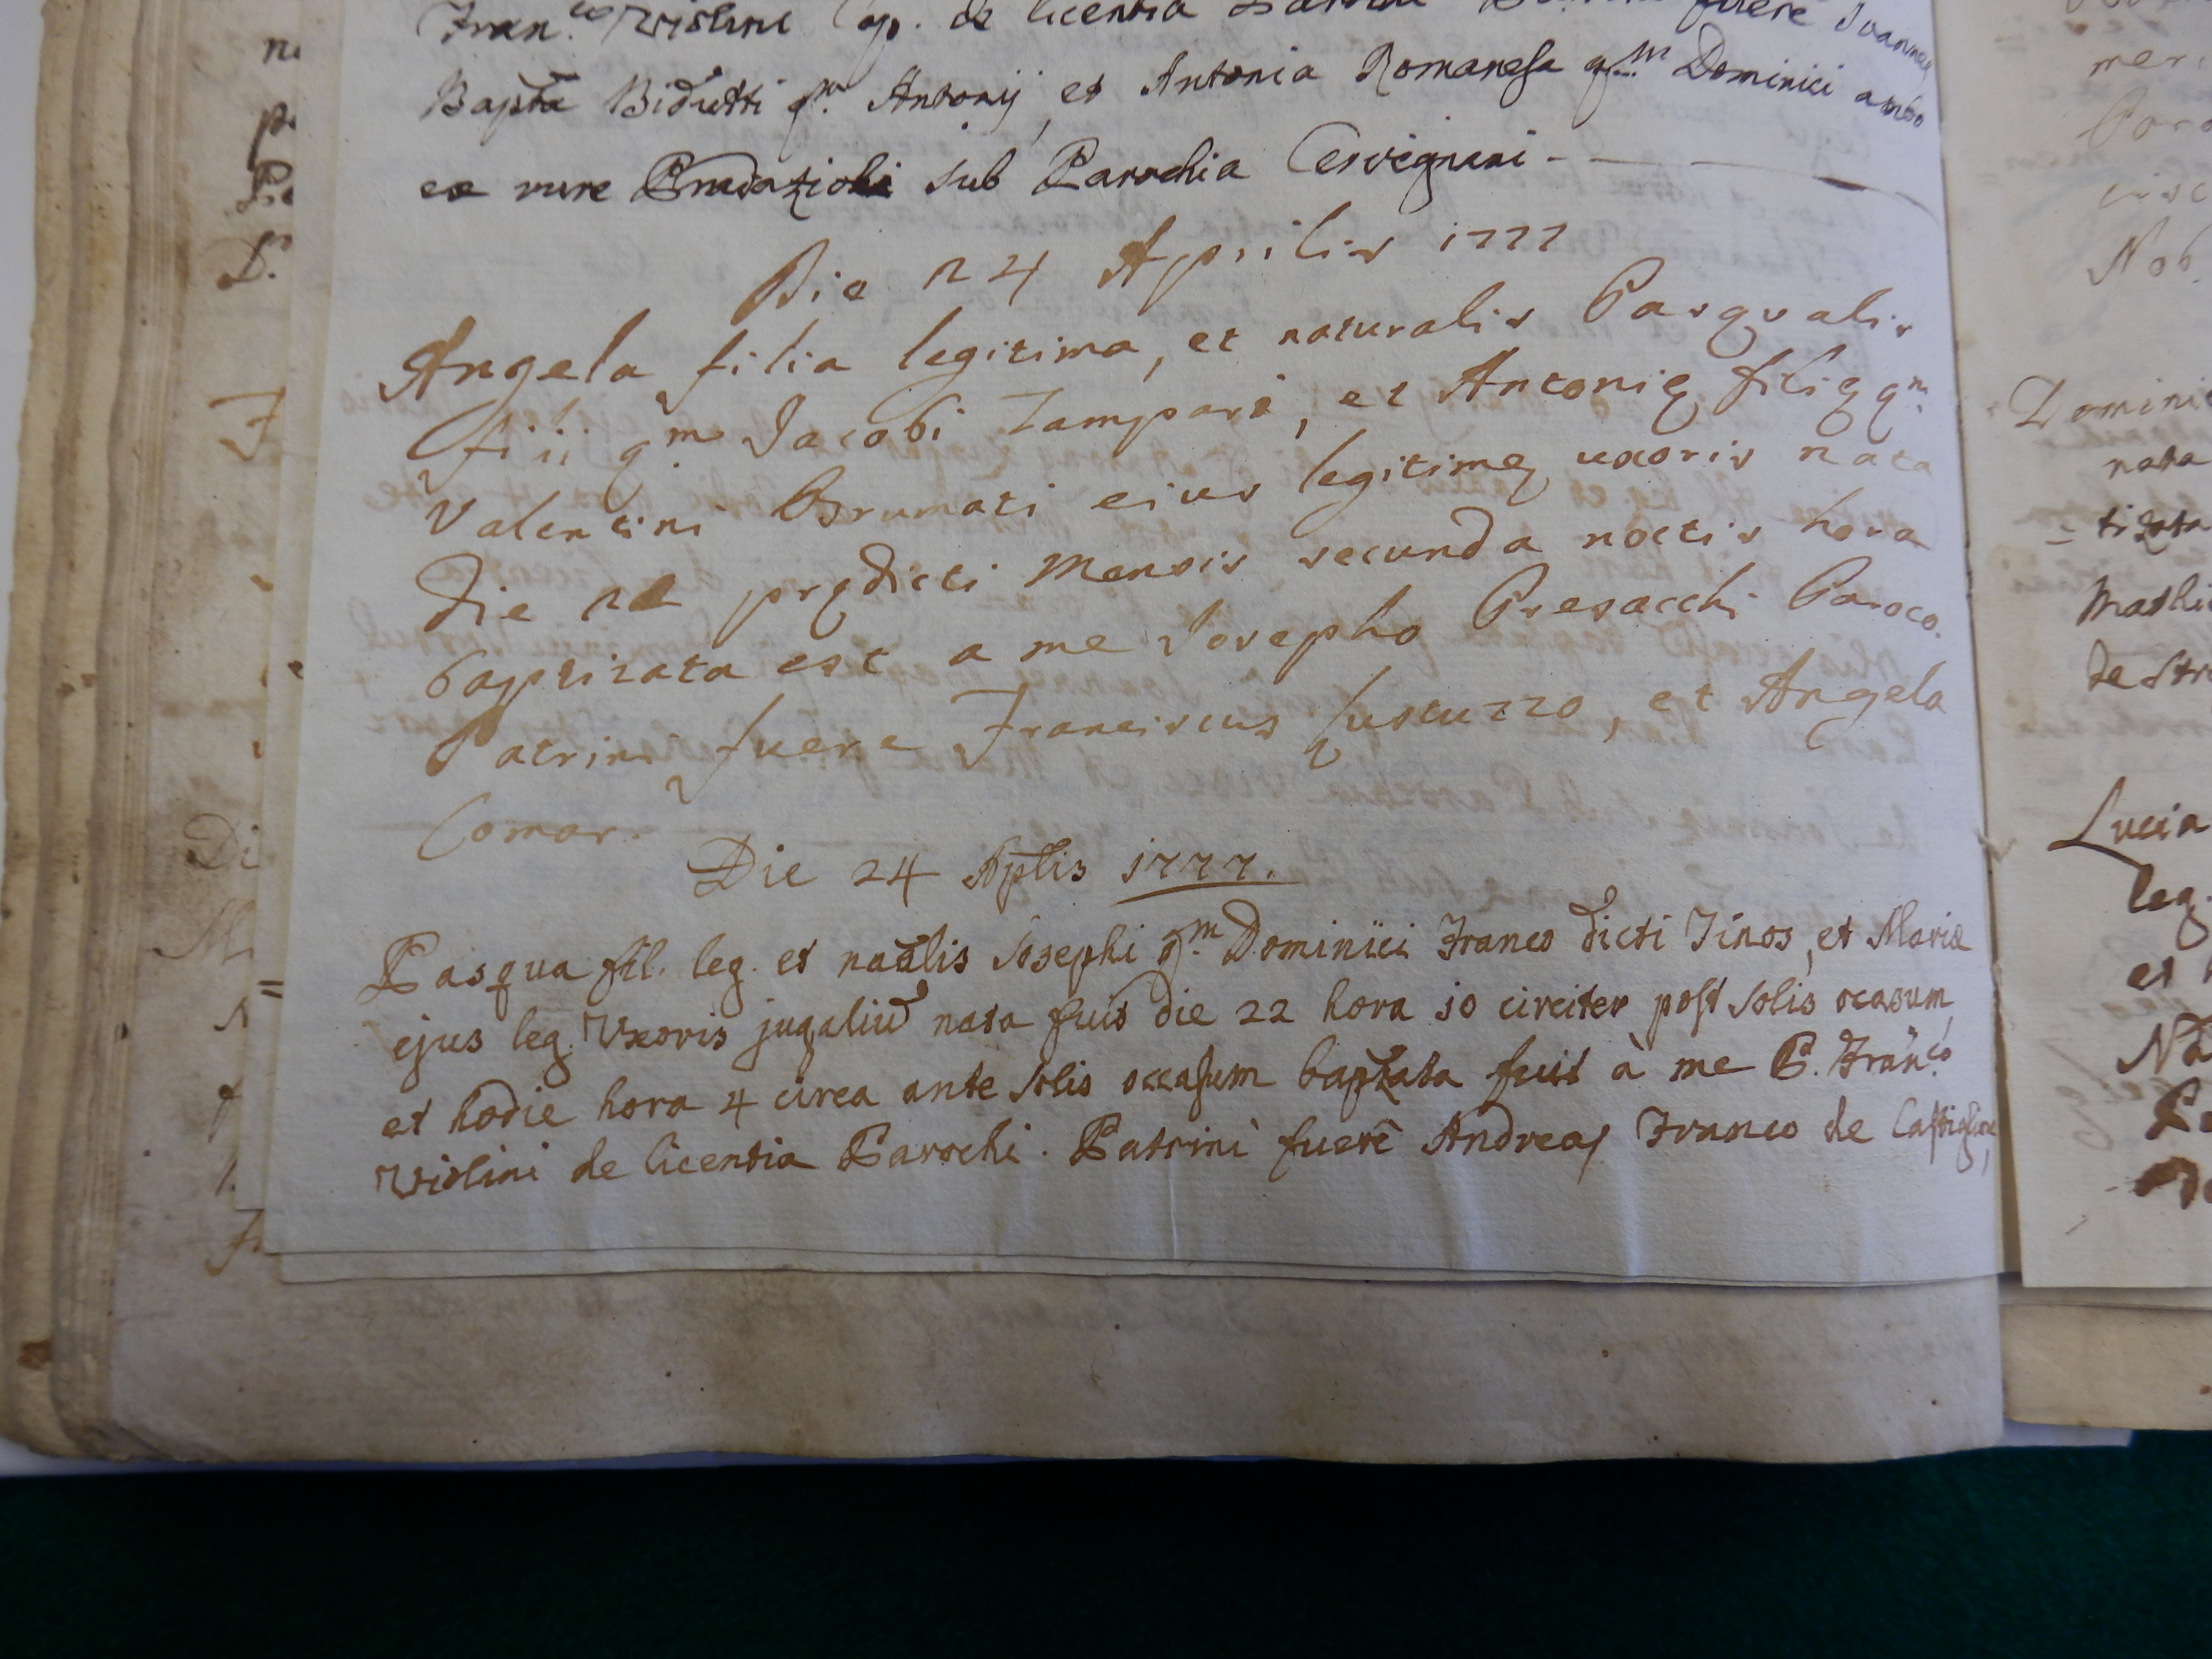 Fran.co Violini Cap. de licentia fuere Joannes
Bapta Bidutti qm. Antonij, et Antonia Romanesa qm. Dominici ambo
ex rure sub Parochia Cervignani
Die 24 Aprilis 1777
Angela filia legitima, et naturalis Pasqualis
filii qm. Jacobi Zampari, et Antonię filię qm.
Valentini Brumati eius legitimę uxoris nata
die prędicti Mensis secunda noctis hora
baptizata est a me Josepho Presacchi Paroco.
Patrini fuere Franciscus Justuzzo, et Angela
Comar.
Die 24 Aplis 1777.
Pasqua fil. leg. et naalis Josephi qm. Dominici Franco dicti Tinos, et Mariæ
ejus leg. Uxoris jugaliu nata fuit die 22 hora 10 circiter post Solis ocasum,
et hodie hora 4 circa ante Solis occasum baptzata fuit à me P. Fran.co
Violini de licentia Parochi. Patrini fuere Andreas Franco de
Domini
nata
tizata
de Stra
Lucia
leg.
et